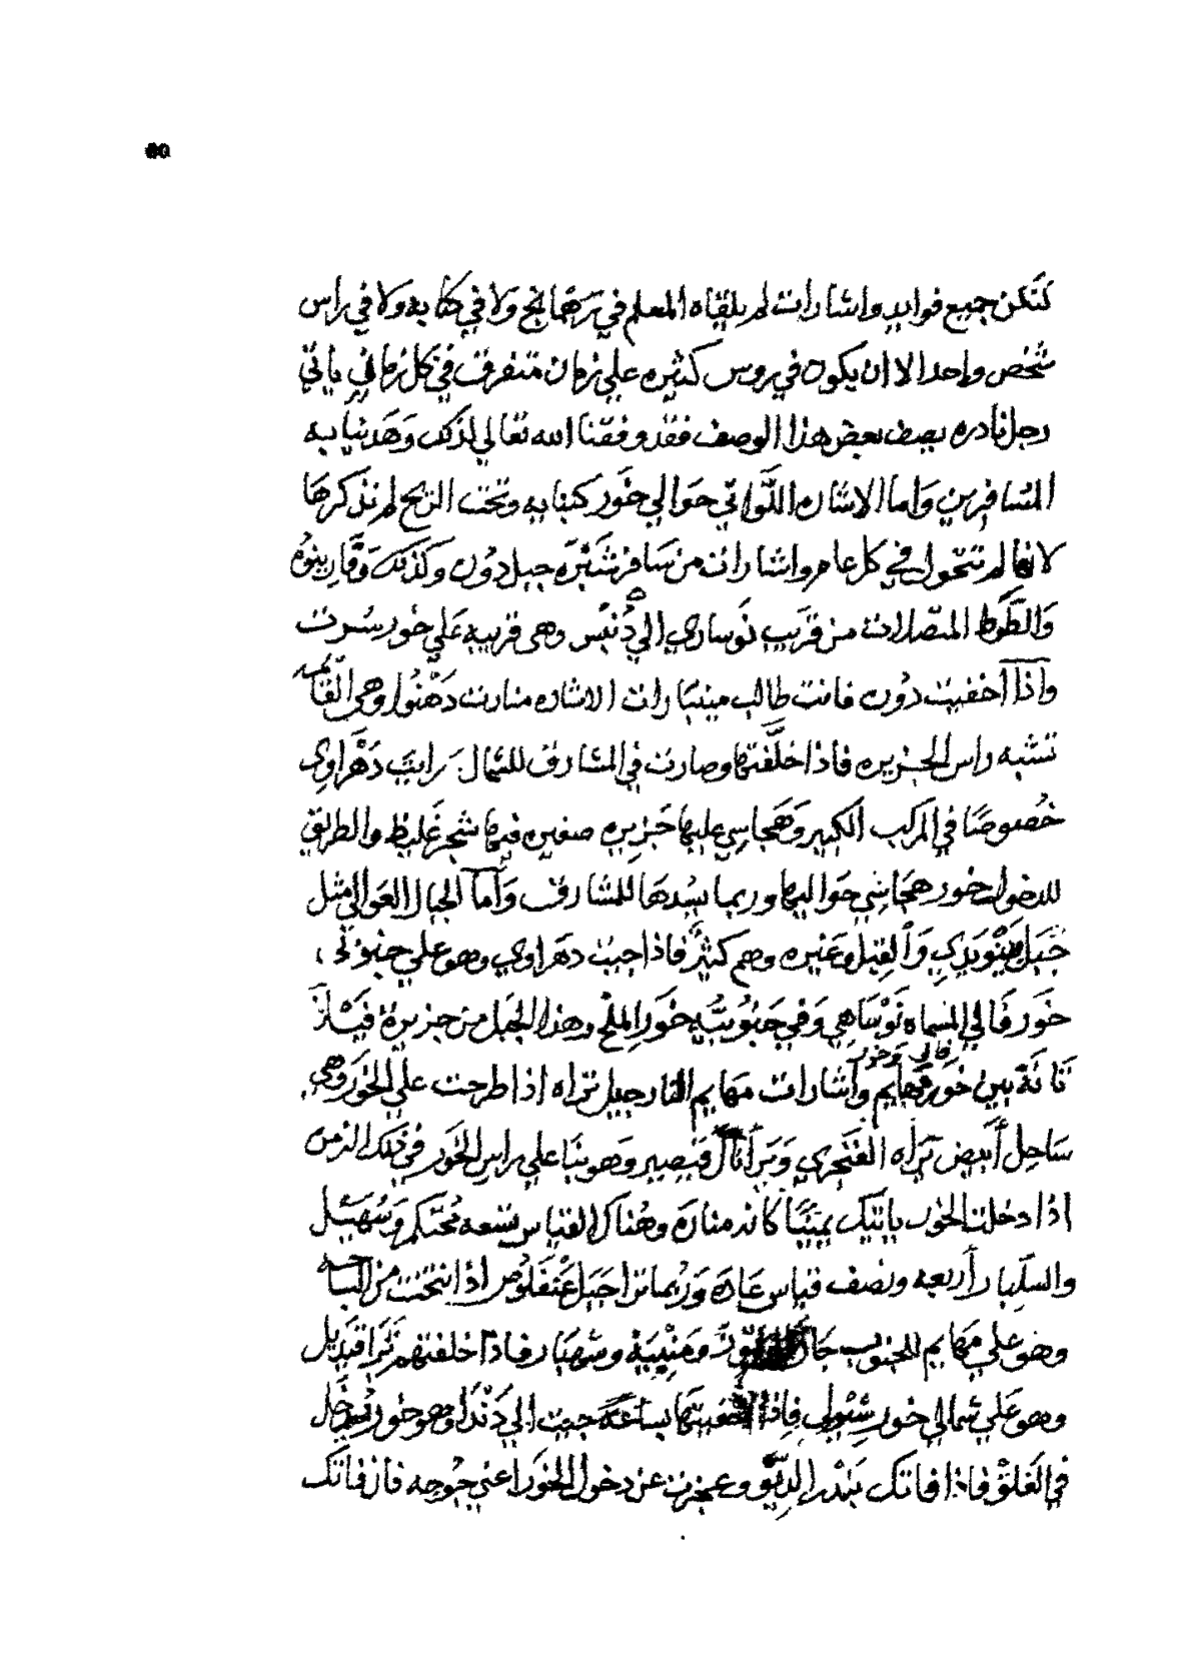 لكن جميع فوايد واشارات لم يلقاه المعلم في رهمانج ولا في كتابه ولا في راس
شخص واحد الا ان يكون في روس كثيره علي زمان متفرق في كل زماني ياتي
رجل نادره يصف بعض هذا الوصف فقد وفقنا الله تعالي لذلك وهدينا به
المسافرين واما الاشاره اللواتي حوالي خور كنبايه وتحت الريح لم نذكرها
لانها لم تتحول في كل عام واشارات من سافر جبل دون وكذلك
والطوط المتصلات من قريب نوساري الي دنبس وهي قريبه علي خور سرت
واذا اخفيت دون فانت طالب ميناء رات الاشاره منارت دهنوا وهي القايمه
تشبه راس الجزيره فاذا خلفتها وصارت في المشارق للشمال رايت دهراوي
خصوصا في المركب الكبير وهجاسي عليها جزيره صغيره فيها شجر غليظ والطريق
للدخول خور هجاسي حواليها وربما يسدها للمشارق واما الجبال العوالي مثل
جبل والفيل وغيره وهم كثير فاذا جيت دهراوي وهو علي جنوبي
خور فالي المسماه نوساهي وفي جنوبيه خور الملح وهذا الجبل من جزيرة
تانة بين خور فالي وخور مهايم واشارات مهايم النارجيل تراه اذا طرحت علي الخور وهي
ساحل أبيض تراه الفنجري وترا نال قيصير وهو بنا علي راس الخور في ذلك الزمن
اذا دخلت الخور ياتيك يمينا كانه مناره وهناك القياس تسعه محكم وسهيل
والسلبار أربعه ونصف قياس عاده وربما ترا جبل اذا نتخت من الباحه
وهو علي مهايم للجنوب فاذا خلفتهم ترا قنديل
وهو علي شمالي خور شيول فاذا اخفيتها بساعة جيت الي دندا وهو خور يدخل
في الغلق فاذا فاتك بندر الديو وعجزت عن دخول الخور اعني جوجه فان فاتك